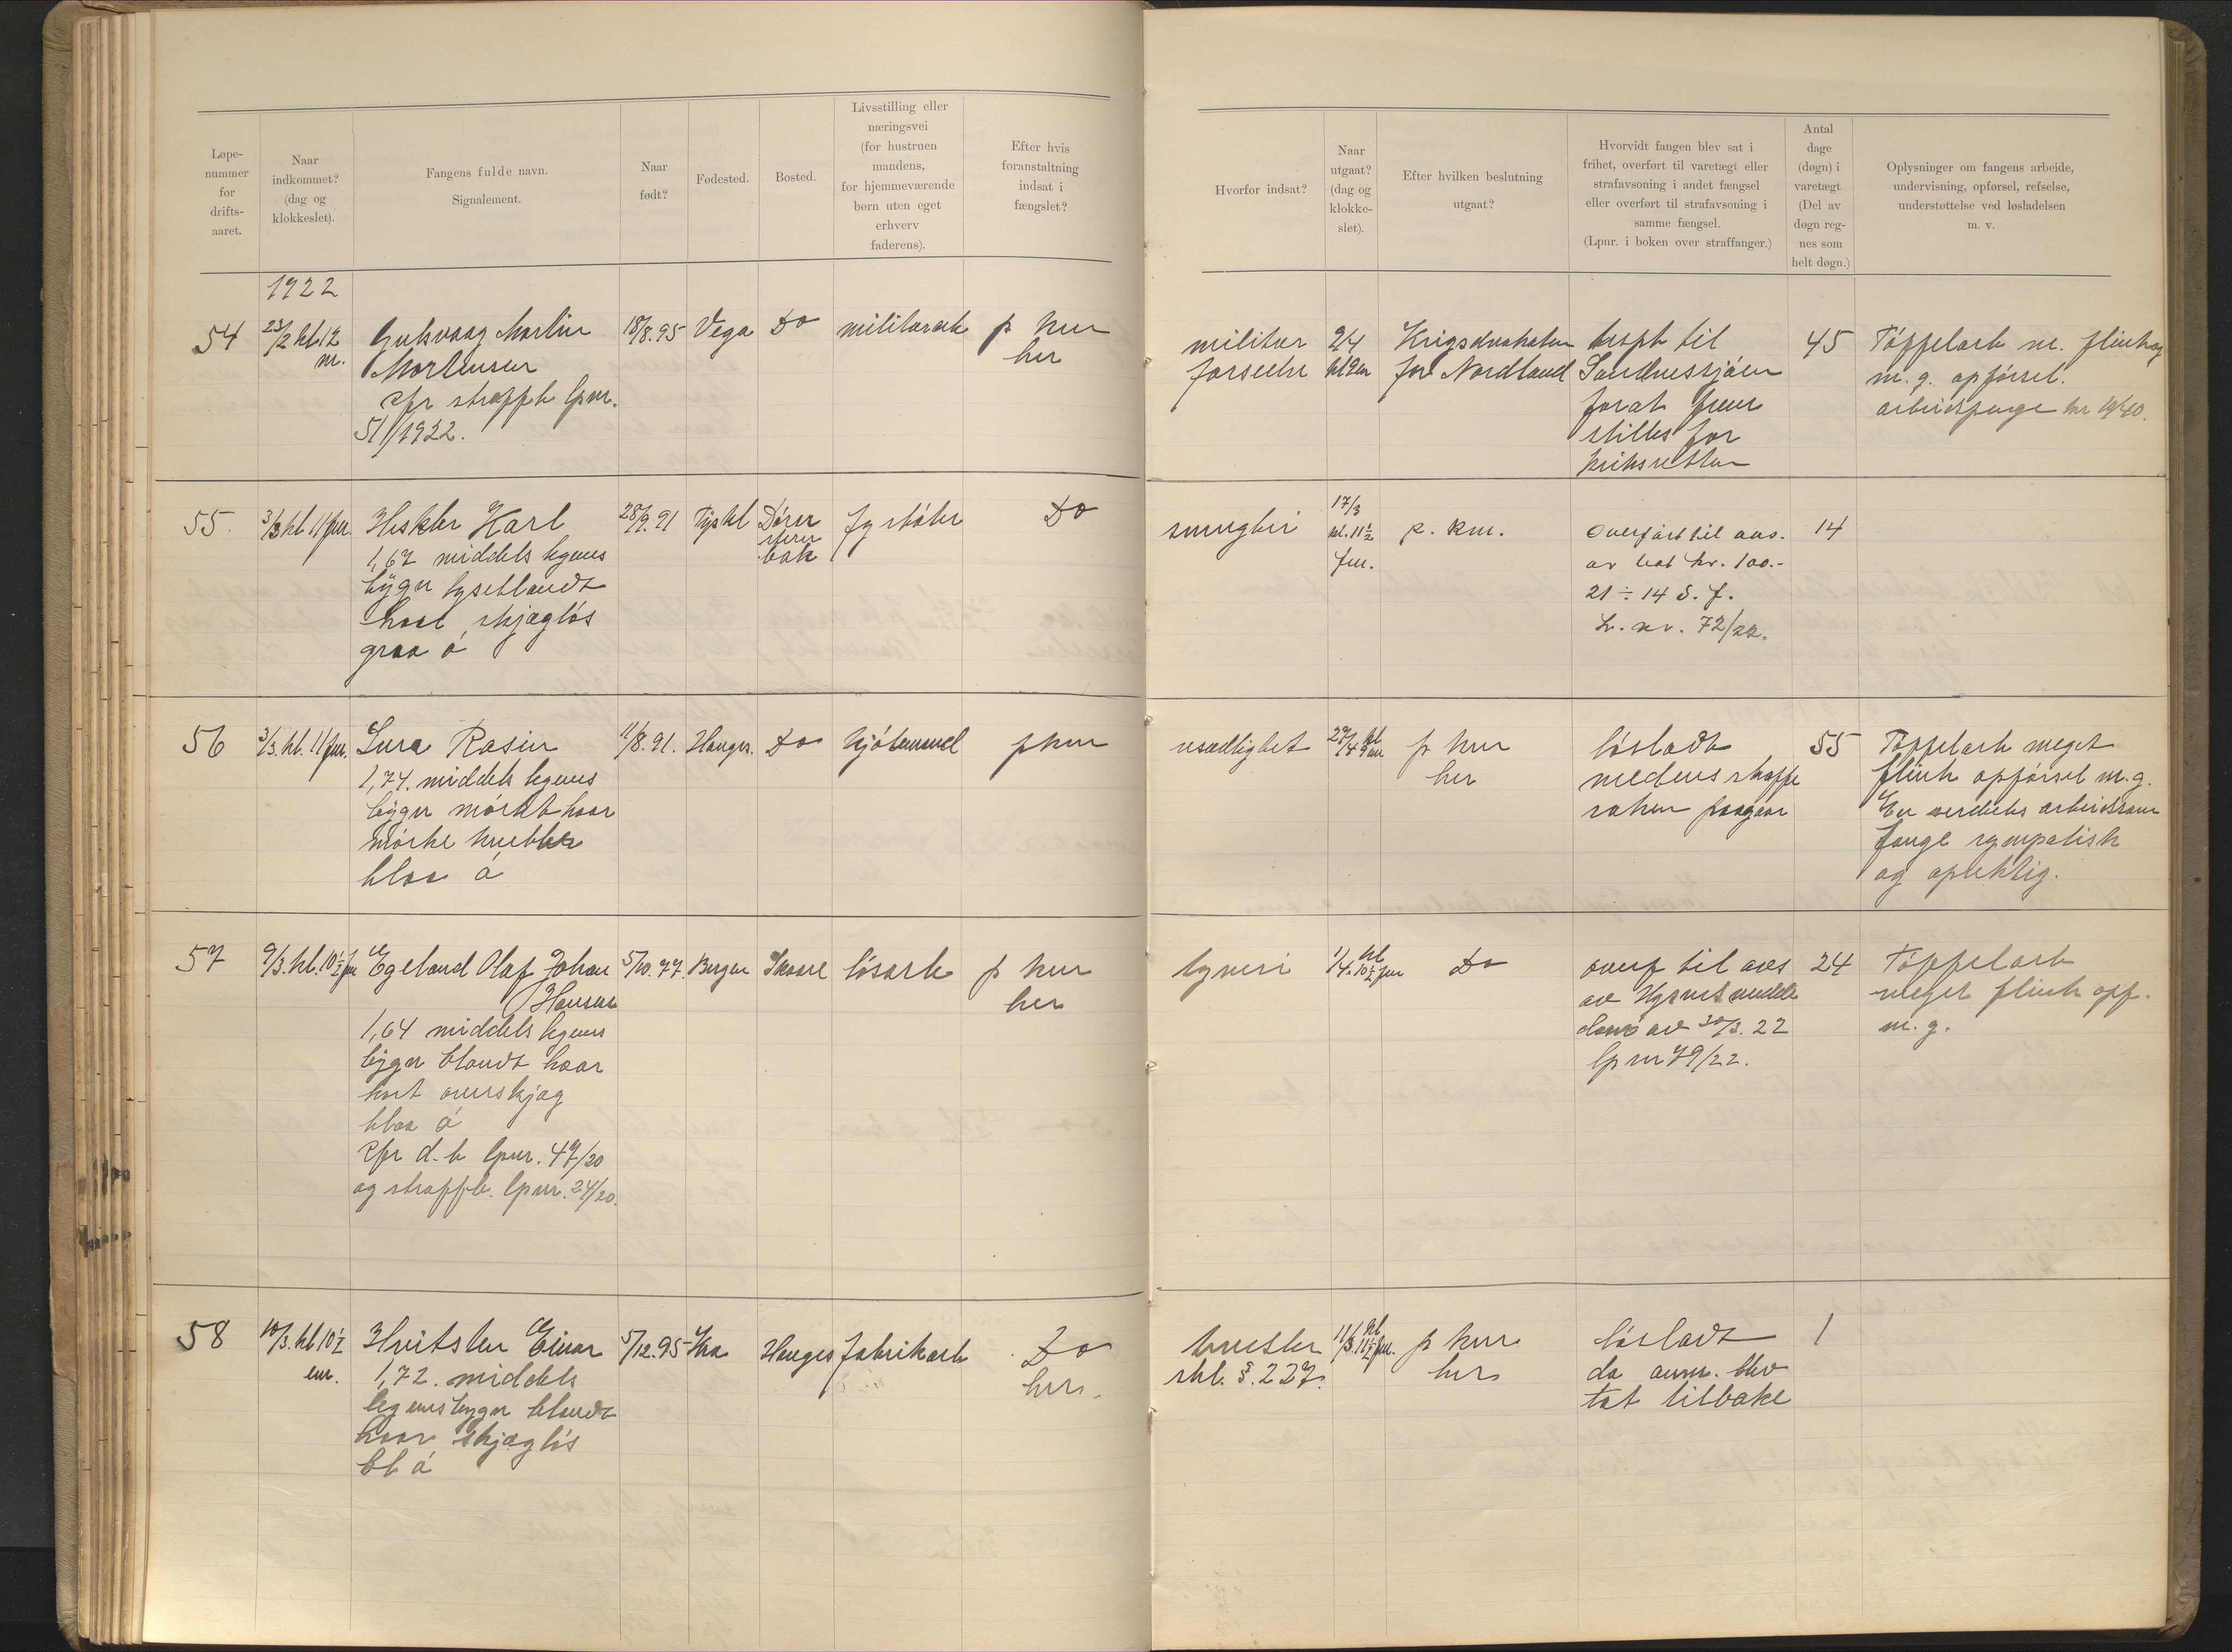 Løpe-
nummer
for
drifts-
aaret.
Naar
indkommet?
(dag og
klokkeslet).
Fangens fulde navn.
Signalement.
Naar
født?
Fødested.
Bosted.
Livsstilling eller
næringsvei
(for hustruen
mandens,
for hjemmeværende
børn uten eget
erhverv
faderens).
Efter hvis
foranstaltning
indsat i
fængslet?
Hvorfor indsat?
Naar
utgaat?
(dag og
klokke-
slet).
Efter hvilken beslutning
utgaat?
Hvorvidt fangen blev sat i
frihet, overført til varetægt eller
strafavsoning i andet fængsel
eller overført til strafavsoning i
samme fængsel.
(Lpnr. i boken over straffanger.)
Antal
dage
(døgn) i
varetægt.
(Del av
døgn reg-
nes som
helt døgn.)
Oplysninger om fangens arbeide,
undervisning, opførsel, refselse,
understøttelse ved løsladelsen
m. v.
1922
54
23/2 kl 12
m.
Martin
Mortensen
cfr straffb lpnr.
51/1922.
18/8.95
Vega
Do
militærarb
p km
her
militær
forseelse
2/4
for Nordland
trspt til
Sandnessjøen
forat frem
stilles for
45
Tøffelarb m. flink og
m. g. opførsel.
55.
3/3 kl 11 fm.
Karl
1,67 middels legems
bygn lyseblondt
haar, skjægløs
graa ø
28/9.91
Tyskl
fyrbøter
Do
smugleri
17/3
kl. 11½
fm.
p. km.
Overført til avs.
av bot kr. 100.-
21 ÷ 14 d. f.
L. nr. 72/22.
14
56
3/3. kl. 11 fm.
Lura Rasin
1,74. middels legems
bygn mørkt haar
mørke knebler
blaa ø
11/8.91.
Hauges.
Do
p km
usædlighet
27/4 kl
p km
her
løsladt
medens straffe
saken paagaar
55
Tøffelarb meget
flink opførsel m. g.
En særdeles arbeidsom
fange sympatisk
og oprktig.
57
9/3. kl. 10½ fm
Egeland Olaf Johan
Hansen
1,64 middels legems
bygn blondt haar
kort overskjæg
blaa ø
cfr d. b lpnr. 47/20
og straffb. lpnr. 24/20.
5/10.77.
Bergen
Skaare
løsarb
p km
her
1/4. kl 10½ fm
Do
overf til avs
av
dom av 30/3. 22
lpnr 79/22.
24
Tøffelarb
meget flink opf.
m. g.
58
10/3. kl 10½
em.
Einar
1,72. middels
legemsbygn blondt
haar skjægløs
bl ø
5/12.95
Kra
Hauges
fabrikarb
Do
her.
trusler
stl. §. 227.
11/3. kl 11½ fm.
p km
her
løsladt
da anm. blev
tat tilbake
1